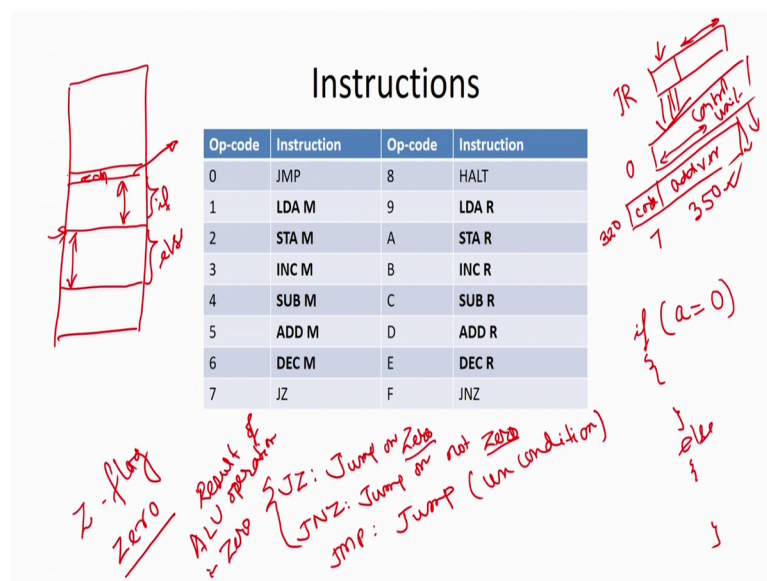 Instructions
Op-code Instruction Op-code Instruction
0 JMP 8 HALT
1 LDA M 9 LDA R
2 STA M A STA R
3 INC M B INC R
4 SUB M C SUB R
5 ADD M D ADD R
6 DEC M E DEC R
7 JZ F JNZ
if
else
IR
control
unit
0
320 code address
7 350
if (a=0)
{
}
else
{
}
Z-flag
Zero
Result of
ALU operation
Zero
JZ: Jump on Zero
JNZ: Jump on not Zero
JMP: Jump (un condition)